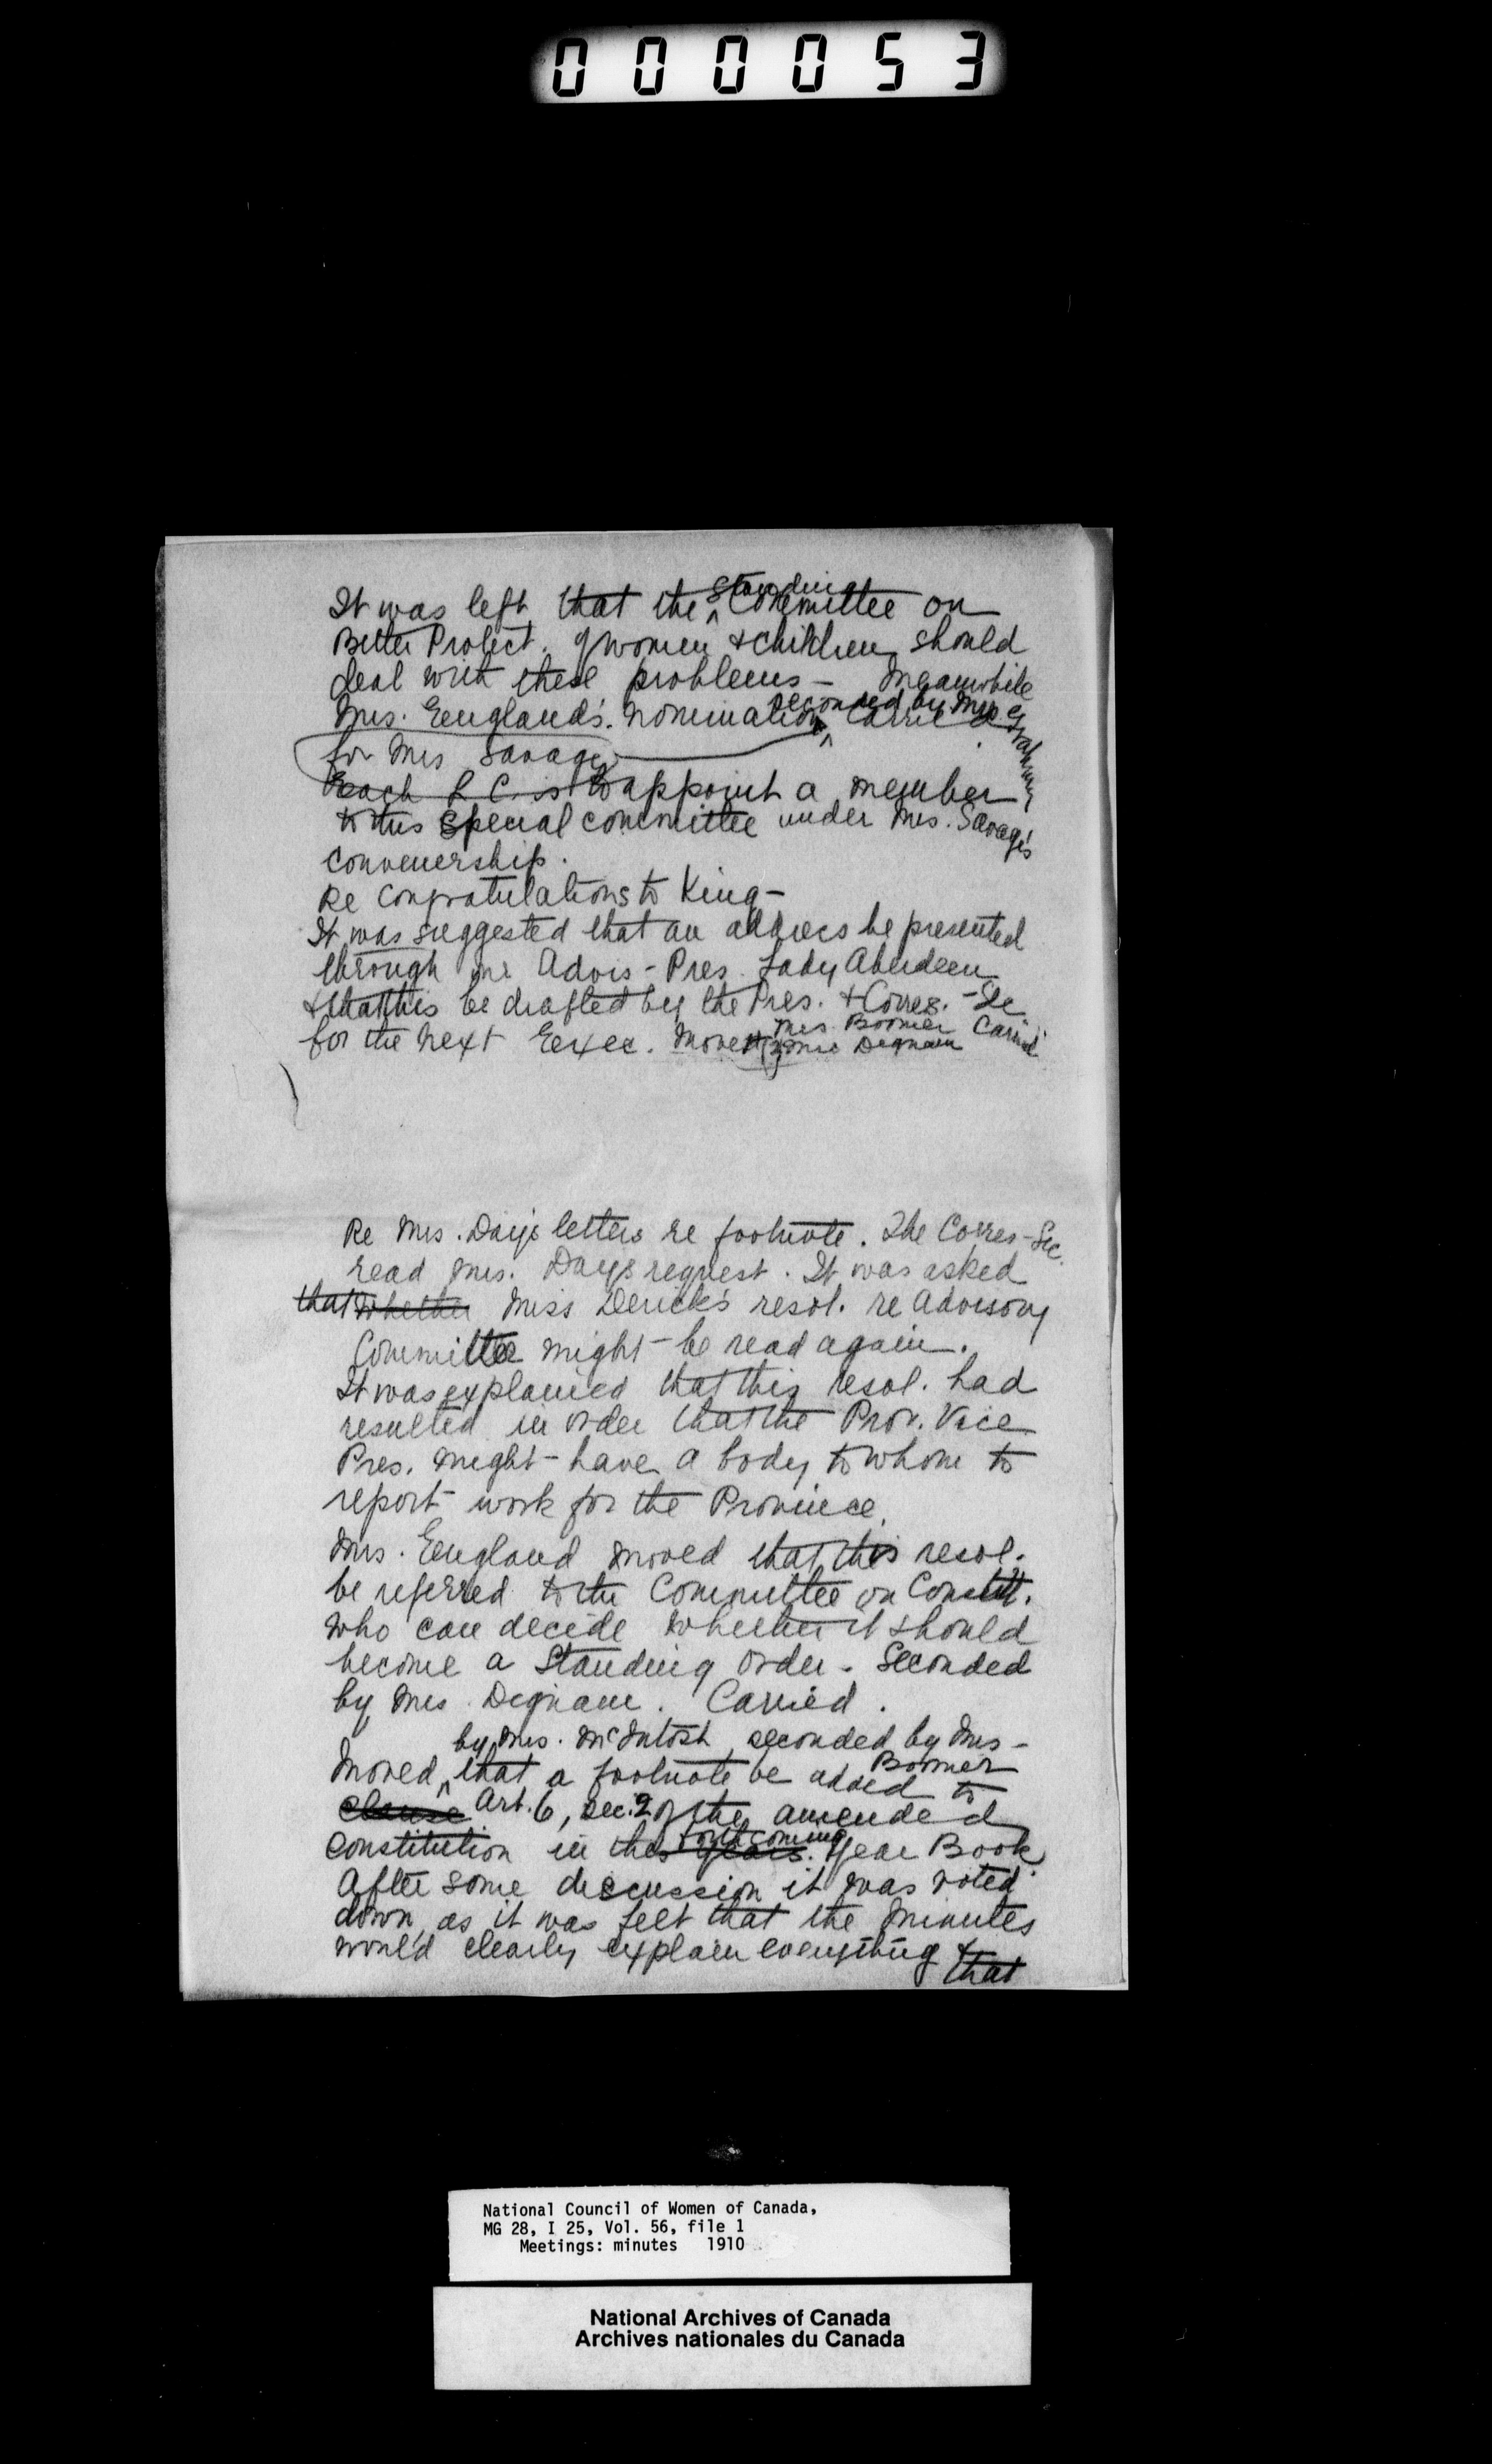 000053
It was left that the ^ Standing Committee on
Better Protect. of women & children should
deal with these problems - Meanwhile
Mrs. England's nomination ^ seconded by Mrs Grahame Carried
for Mrs Savage
Each L C. is to appoint a member
to this special committee under Mrs. Savage's
convenership.
Re Congratulations to King -
It was suggested that an address be presented
through our Advis-Pres Lady Aberdeen
& that this be drafted by the Pres. & Corres. - Se
for the next Exec. Moved Mrs. Boomer Carried
Mrs Dignam
Re Mrs. Day's letters re footnote. The Corres-Sec.
read Mrs. Days request. It was asked
that whether Miss Derick's resol. re Advisory
Committee might be read again.
It was explained that this resol. had
resulted in order that the Prov. Vice
Pres. might have a body to whom to
report work for the Province.
Mrs. England moved that this resol.
be referred to the Committee on Constit.
who can decide whether it should
become a Standing order. Seconded
by Mrs Dignam. Carried.
by Mrs. McIntosh, seconded by Mrs - Boomer
Moved ^ that a footnote be added to
clause Art. 6, Sec. 2 of the amended
constitution in this years. forthcoming Year Book
After some discussion it was voted
down, as it was felt that the minutes
would clearly explain everything &
that
National Council of Women of Canada,
MG 28, I 25, Vol. 56, file 1
Meetings: minutes 1910
National Archives of Canada
Archives nationales du Canada